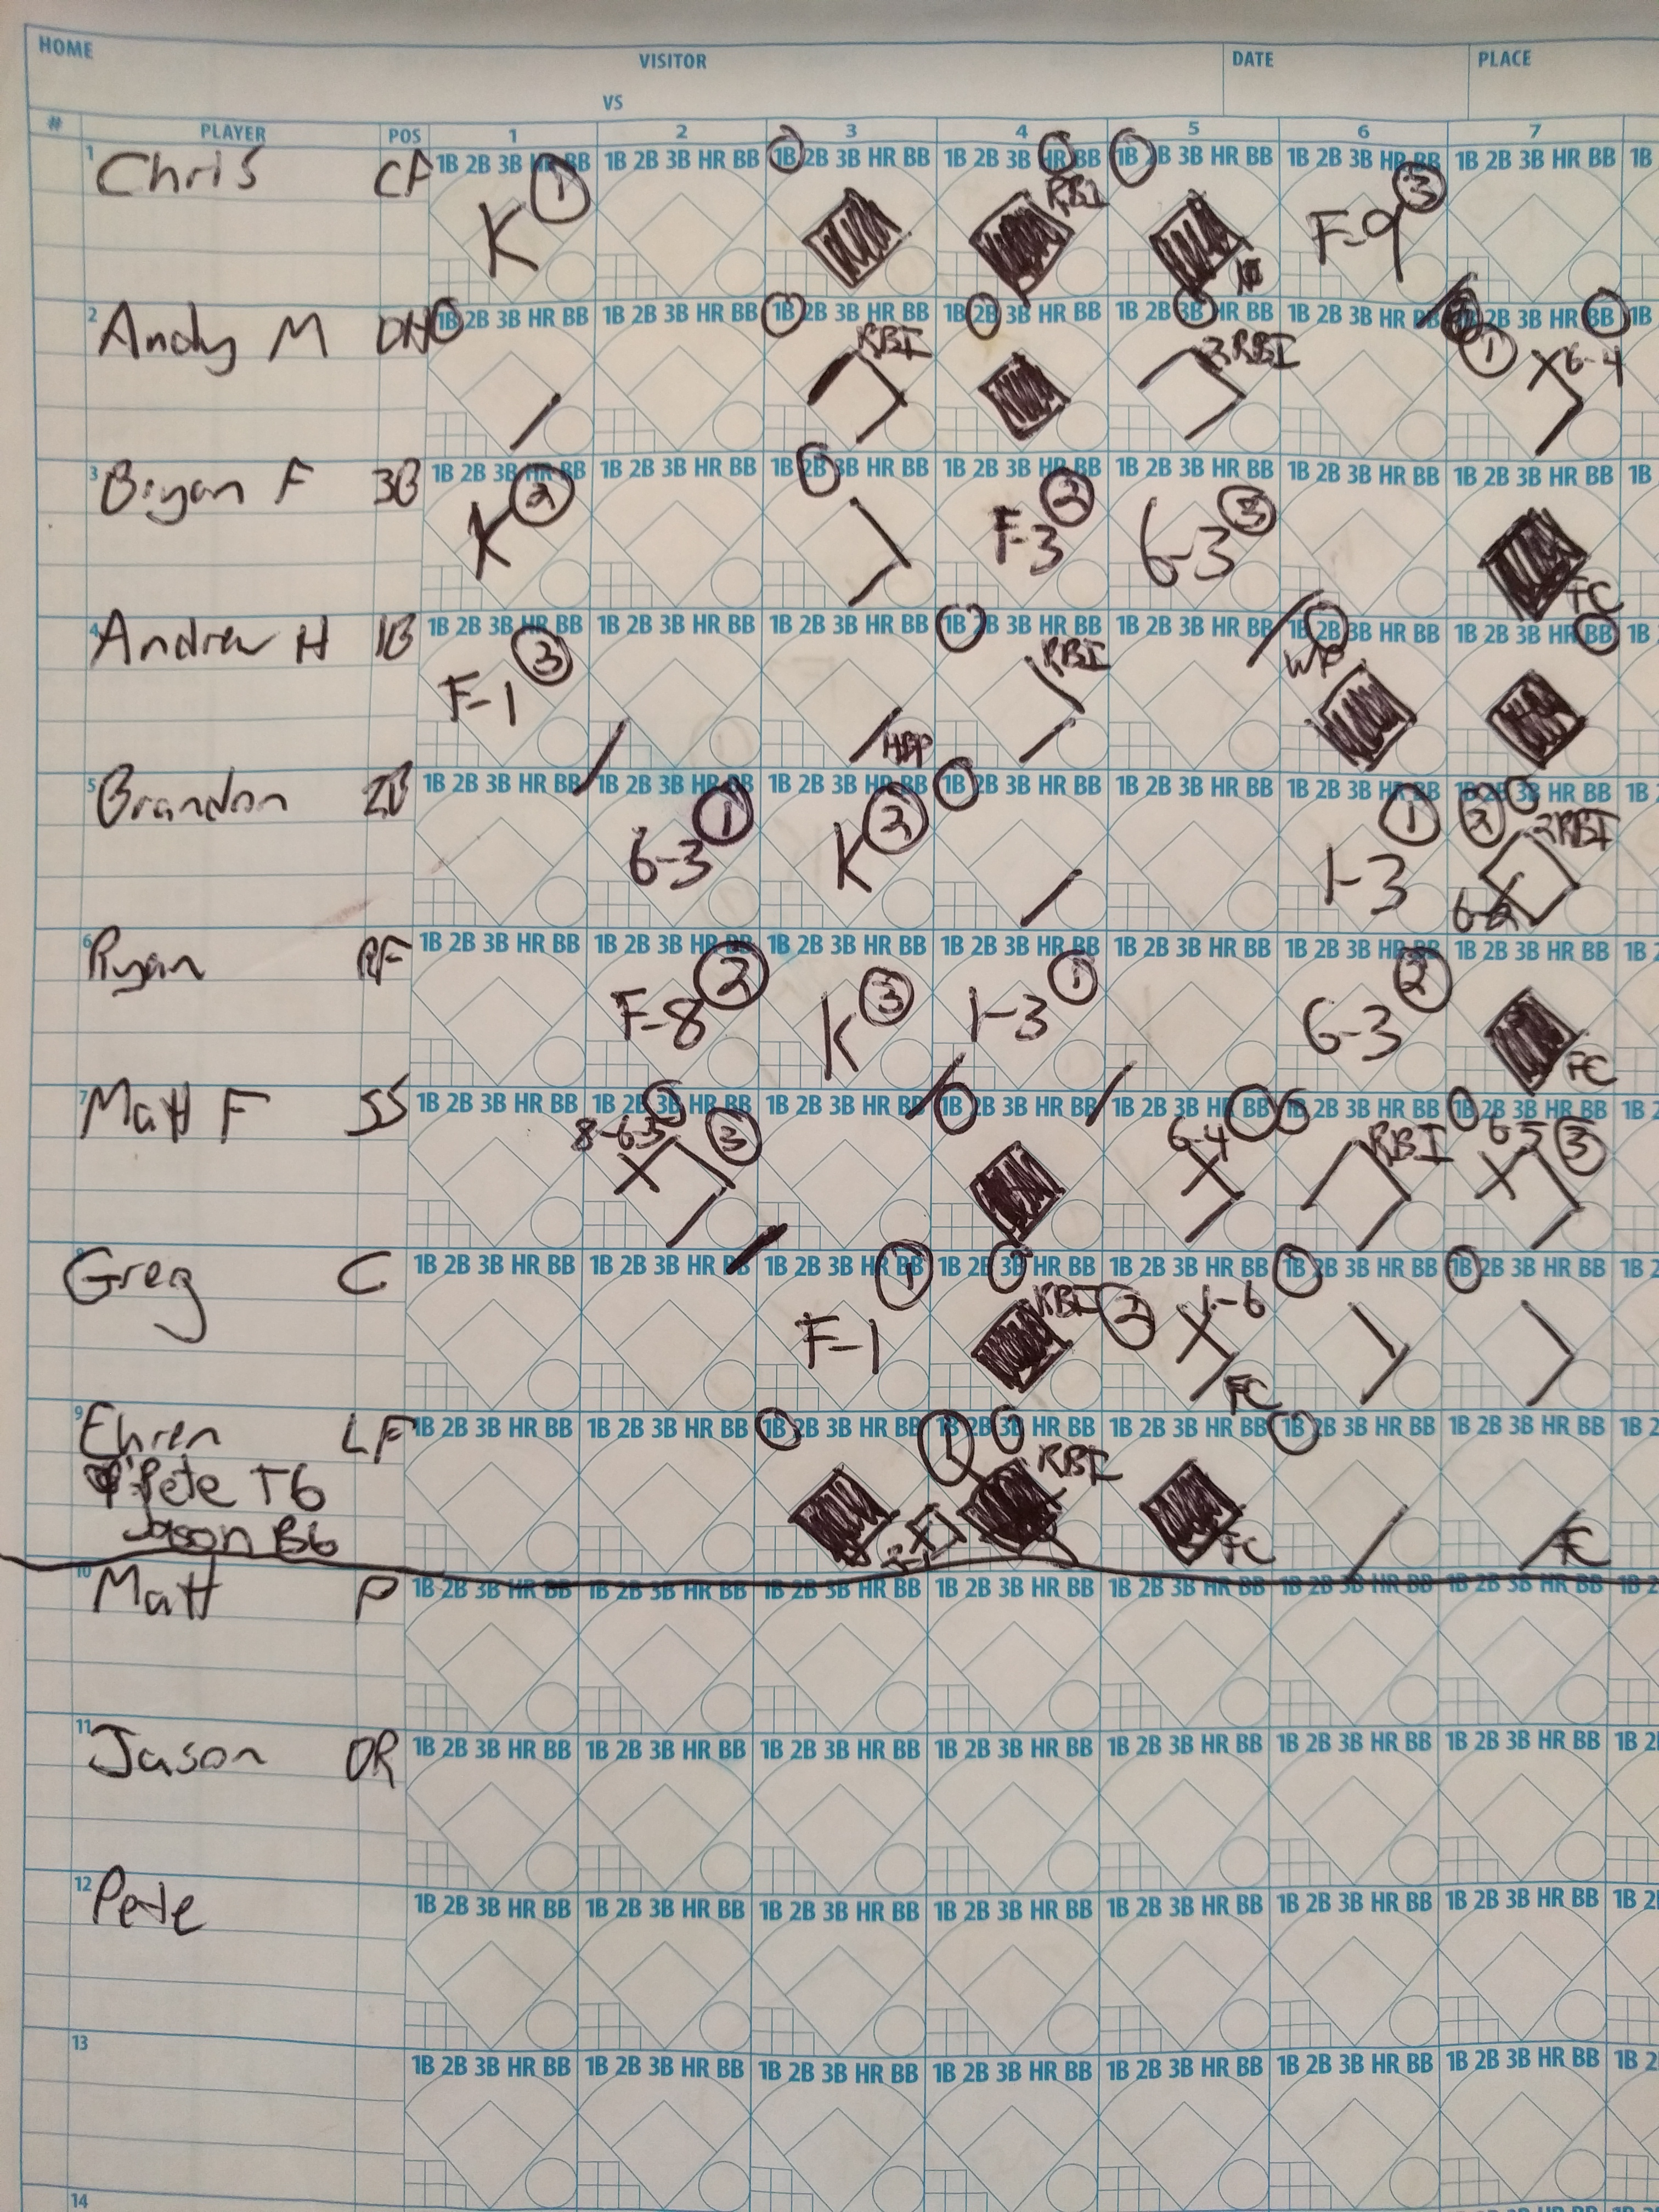 HOME VISITOR DATE PLACE
VS
# PLAYER POS 1 2 3 4 5 6 7
1 Chris CF 1B 2B 3B HR BB 1B 2B 3B HR BB 1B 2B 3B HR BB 1B 2B 3B HR BB 1B 2B 3B HR BB 1B 2B 3B HR BB 1B 2B 3B HR BB 1B
K 1 RBI F-9 3
2 Andy M DH 1B 2B 3B HR BB 1B 2B 3B HR BB 1B 2B 3B HR BB 1B 2B 3B HR BB 1B 2B 3B HR BB 1B 2B 3B HR BB 2B 3B HR BB 1B
RBI 2RBI 1 6-4
3 Bryan F 3B 1B 2B 3B HR BB 1B 2B 3B HR BB 1B 2B 3B HR BB 1B 2B 3B HR BB 1B 2B 3B HR BB 1B 2B 3B HR BB 1B 2B 3B HR BB 1B
K 2 F-3 2 6-3 3 FC
4 Andrew H 1B 1B 2B 3B HR BB 1B 2B 3B HR BB 1B 2B 3B HR BB 1B 2B 3B HR BB 1B 2B 3B HR BB 1B 2B 3B HR BB 1B 2B 3B HR BB 1B
F-1 3 HBP RBI WP
5 Brandon 2B 1B 2B 3B HR BB 1B 2B 3B HR BB 1B 2B 3B HR BB 1B 2B 3B HR BB 1B 2B 3B HR BB 1B 2B 3B HR BB 1B 2B 3B HR BB 1B
6-3 1 K 2 1-3 1 2 2RBI
6 Ryan RF 1B 2B 3B HR BB 1B 2B 3B HR BB 1B 2B 3B HR BB 1B 2B 3B HR BB 1B 2B 3B HR BB 1B 2B 3B HR BB 1B 2B 3B HR BB 1B 2
F-8 2 K 3 1-3 1 6-3 2 FC
7 Matt F SS 1B 2B 3B HR BB 1B 2B 3B HR BB 1B 2B 3B HR BB 1B 2B 3B HR BB 1B 2B 3B HR BB 1B 2B 3B HR BB 1B 2B 3B HR BB 1B 2
8-6-5 3 6-4 RBI 6-5 3
8 Greg C 1B 2B 3B HR BB 1B 2B 3B HR BB 1B 2B 3B HR BB 1B 2B 3B HR BB 1B 2B 3B HR BB 1B 2B 3B HR BB 1B 2B 3B HR BB 1B 2
F-1 1 RBI 2 1-6 FC
9 Ehren LF 1B 2B 3B HR BB 1B 2B 3B HR BB 1B 2B 3B HR BB 1B 2B 3B HR BB 1B 2B 3B HR BB 1B 2B 3B HR BB 1B 2B 3B HR BB 1B 2
Pete T6 1 RBI FC FC
Jason B6
10 Matt P 1B 2B 3B HR BB 1B 2B 3B HR BB 1B 2B 3B HR BB 1B 2B 3B HR BB 1B 2B 3B HR BB 1B 2B 3B HR BB 1B 2B 3B HR BB 1B 2
11 Jason DR 1B 2B 3B HR BB 1B 2B 3B HR BB 1B 2B 3B HR BB 1B 2B 3B HR BB 1B 2B 3B HR BB 1B 2B 3B HR BB 1B 2B 3B HR BB 1B 2
12 Pete 1B 2B 3B HR BB 1B 2B 3B HR BB 1B 2B 3B HR BB 1B 2B 3B HR BB 1B 2B 3B HR BB 1B 2B 3B HR BB 1B 2B 3B HR BB 1B 2
13 1B 2B 3B HR BB 1B 2B 3B HR BB 1B 2B 3B HR BB 1B 2B 3B HR BB 1B 2B 3B HR BB 1B 2B 3B HR BB 1B 2B 3B HR BB 1B 2
14